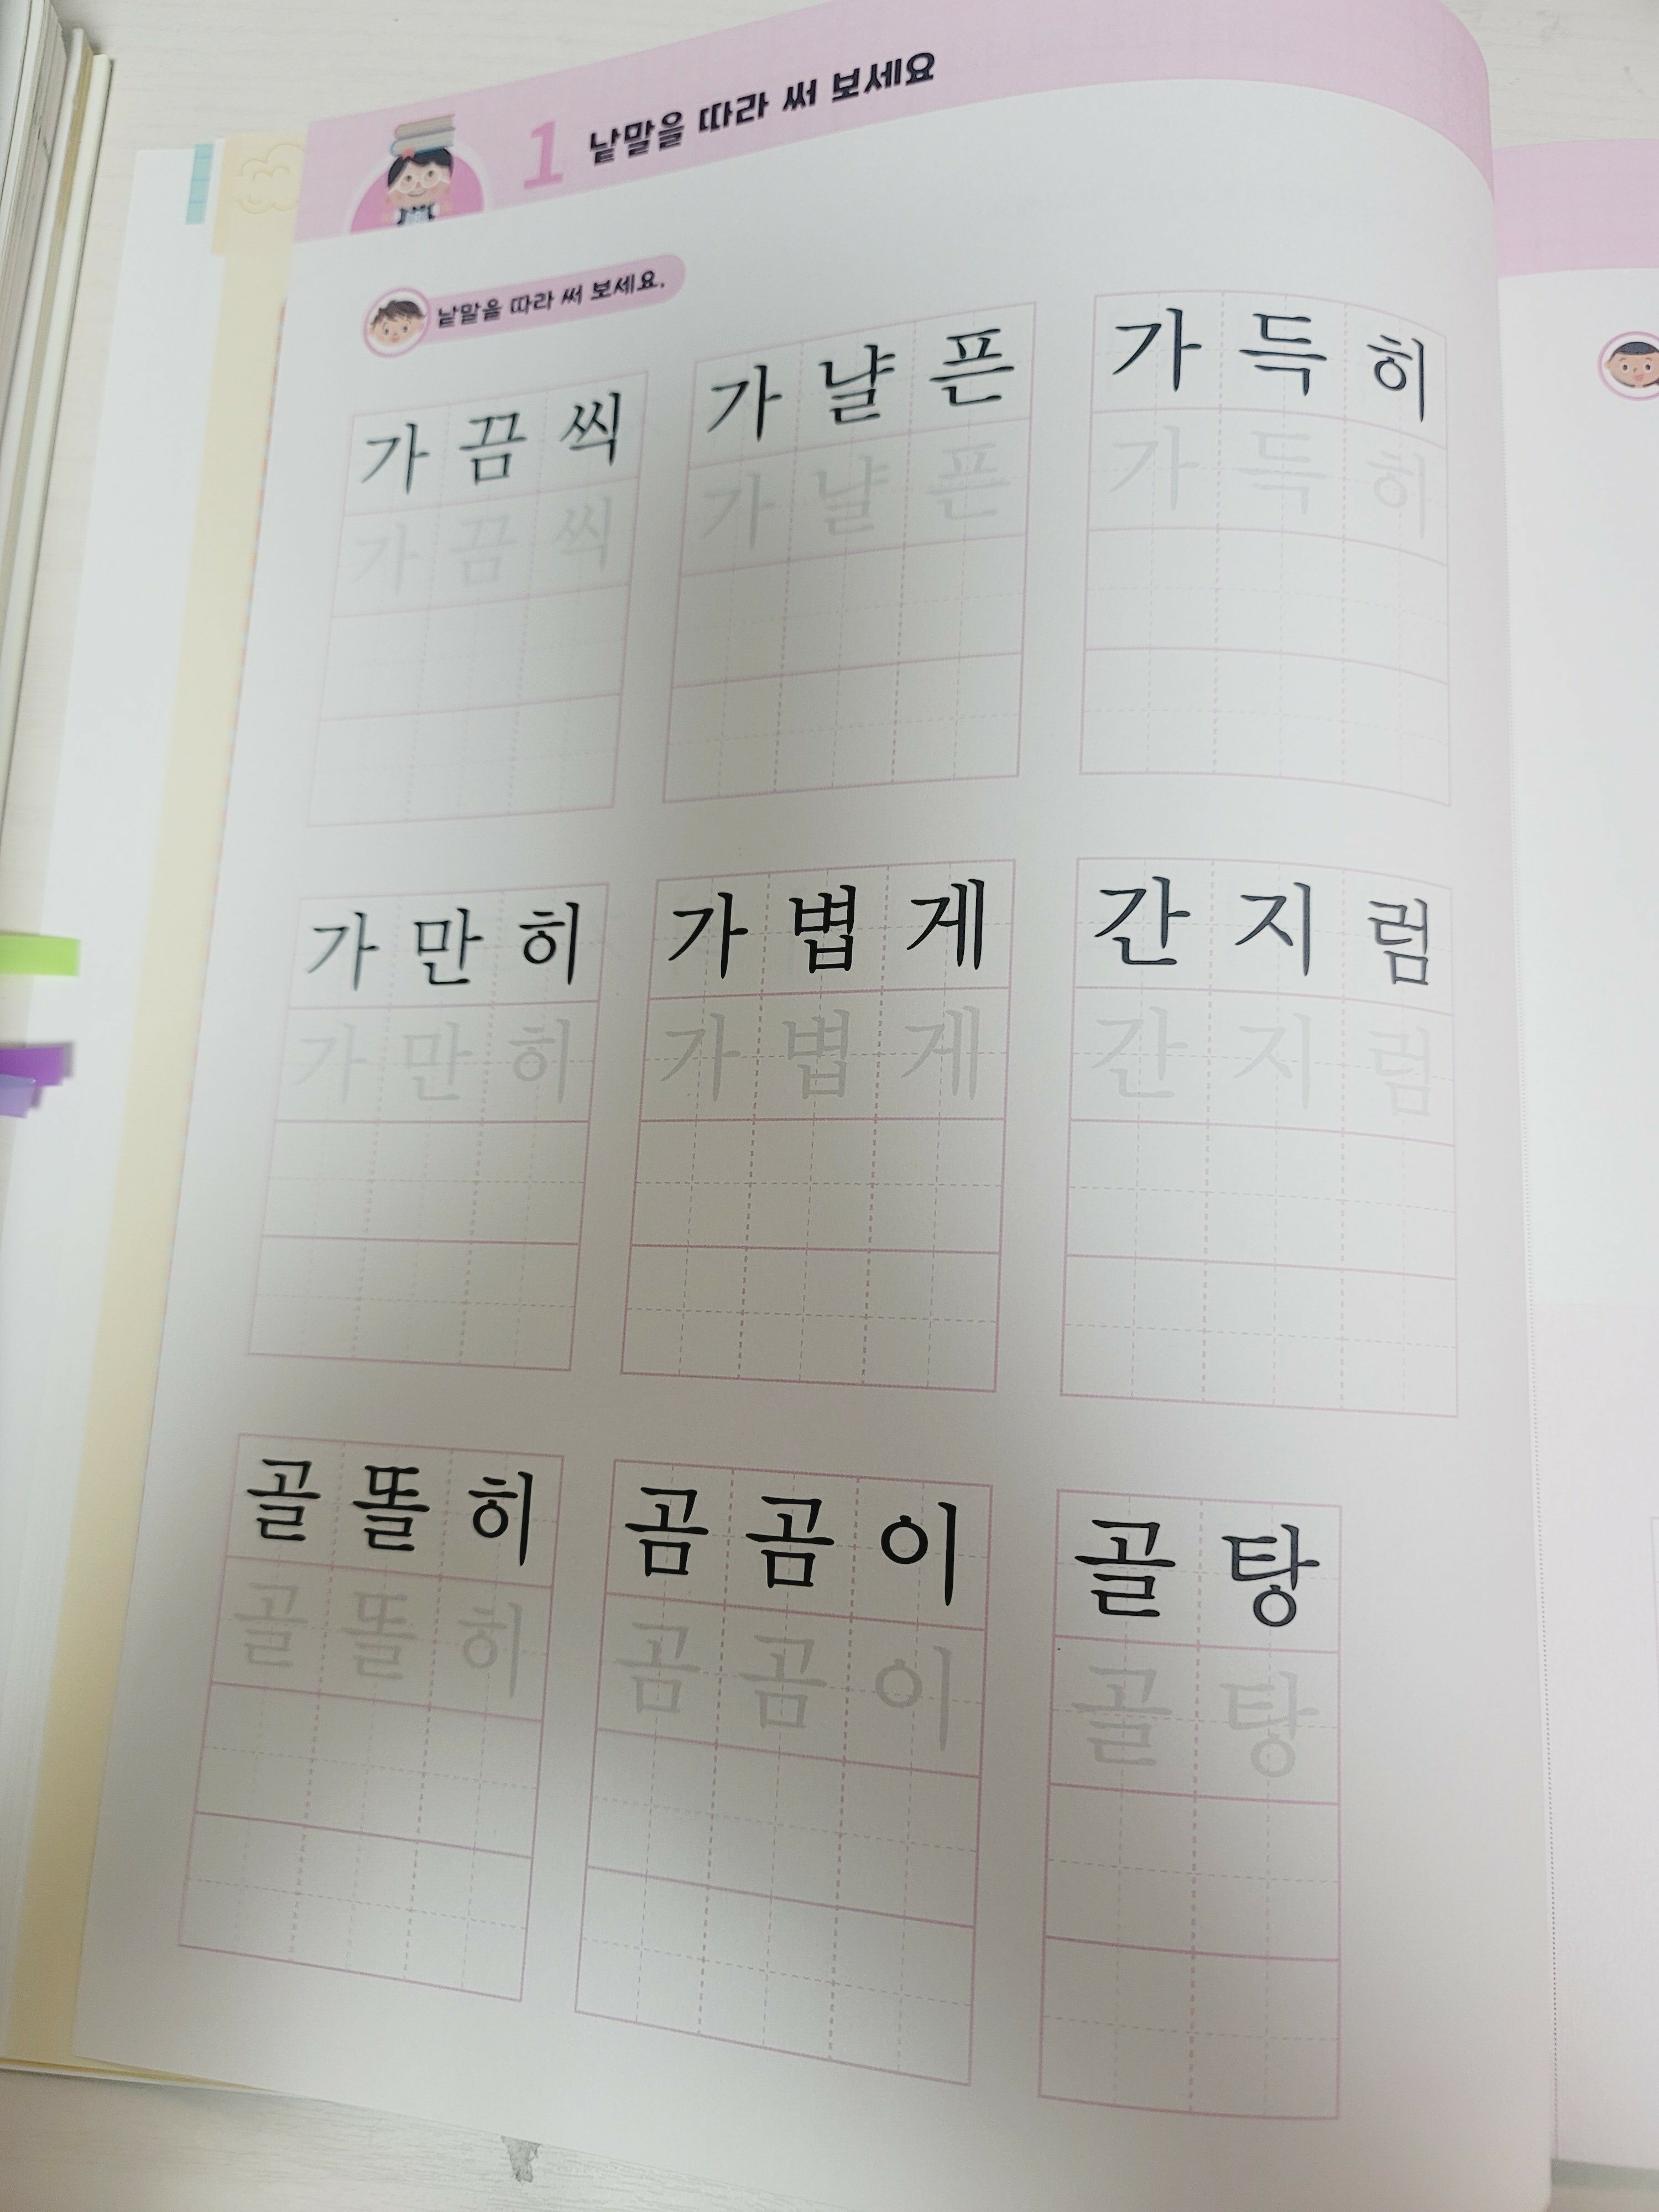 1 낱말을 따라 써 보세요
낱말을 따라 써 보세요.
가끔씩 가냘픈 가득히
가끔씩 가냘픈 가득히
가만히 가볍게 간지럼
가만히 가볍게 간지럼
골똘히 곰곰이 골탕
골똘히 곰곰이 골탕